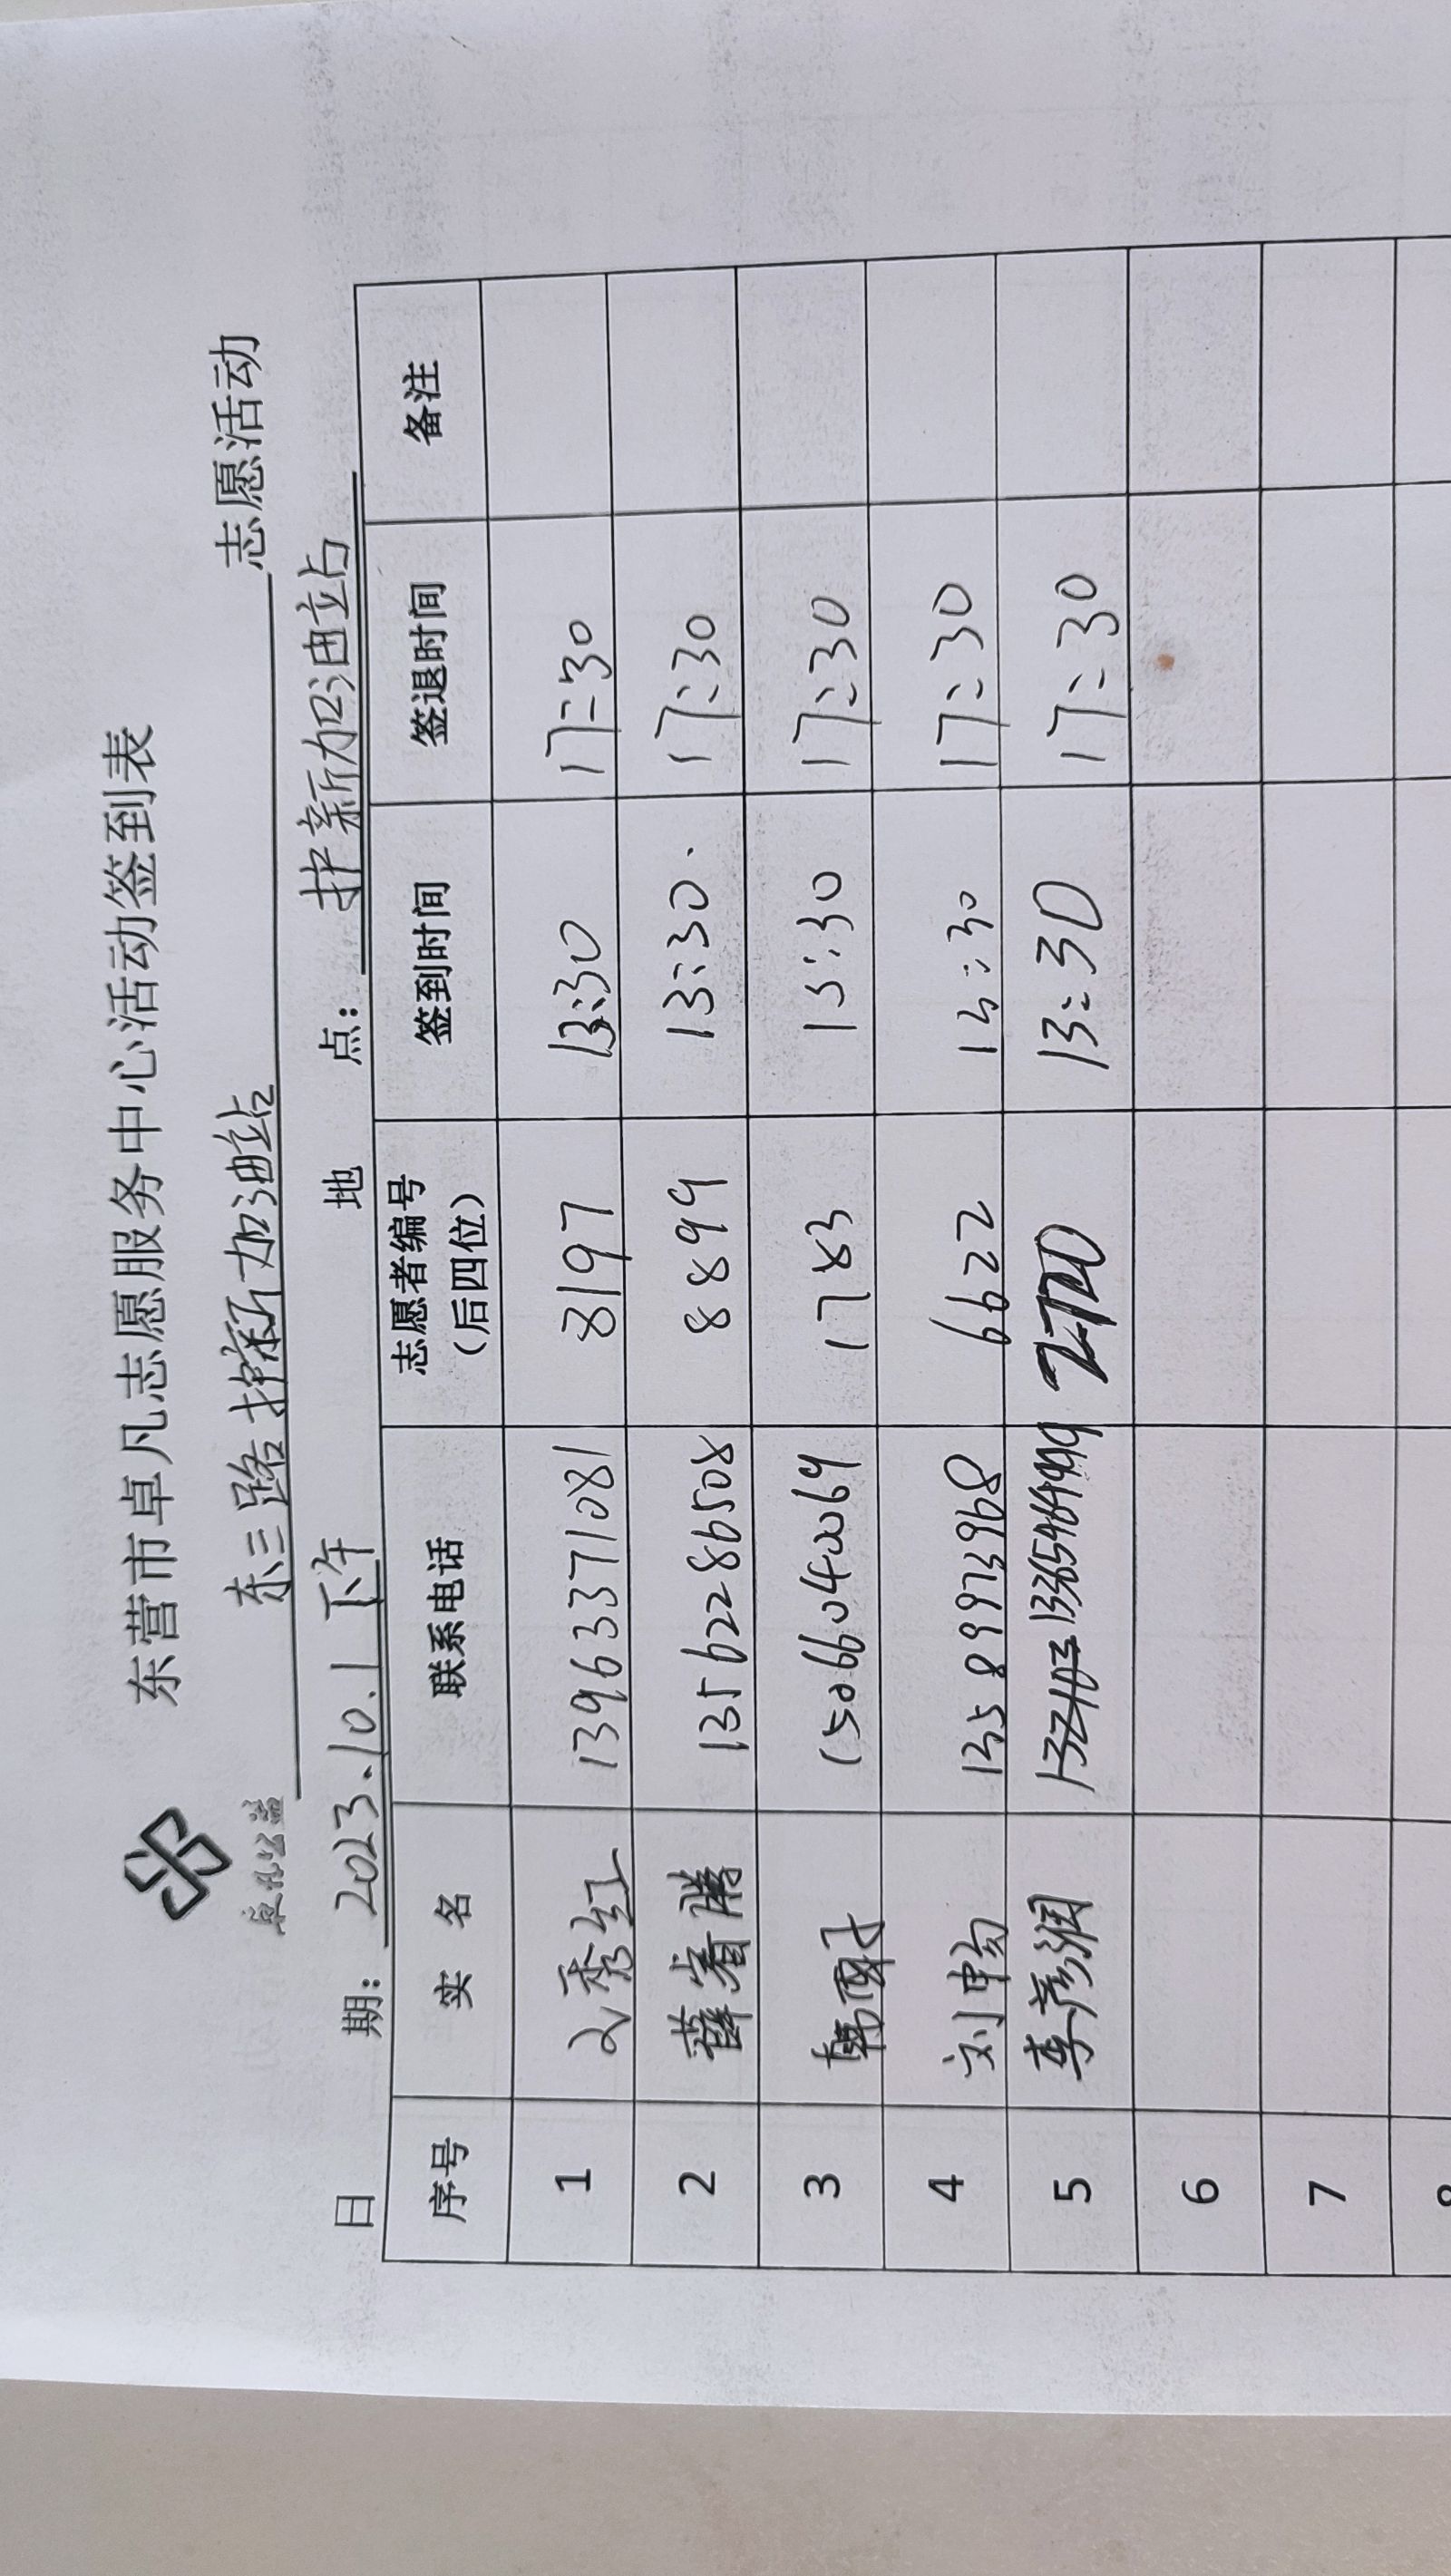 东营市卓凡志愿服务中心活动签到表
卓凡公益
东三路护新加油站 志愿活动
日 期: 2023.10.1 下午 地 点: 护新加油站
序号 实 名 联系电话 志愿者编号（后四位） 签到时间 签退时间 备注
1 秀红 13963371081 8197 13:30 17:30
2 薛睿腾 13562286508 8899 13:30. 17:30
3 韩 15066040069 1783 13:30 17:30
4 刘畅 13589973968 6622 13:30 17:30
5 李彦润 13:30 17:30
6
7
8